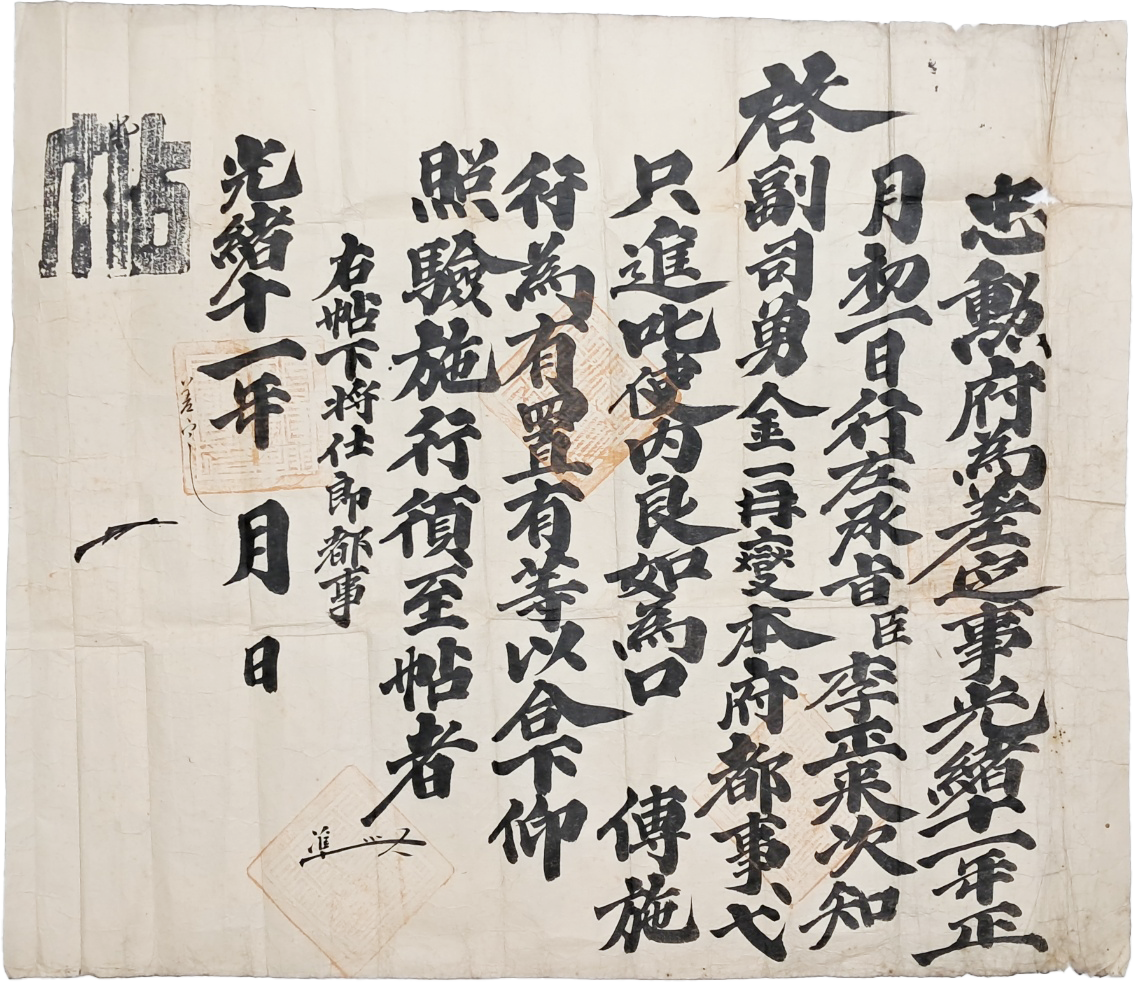 忠勳府為差定事光緒十一年正
月初一日行左承旨臣李正來次知
啓副司勇金再變本府都事以
只進叱使內良如為口傳施
行為有置有等以合下仰
照驗施行須至帖者
右帖下將仕郎都事
光緒十一年 月 日
差定
准
帖